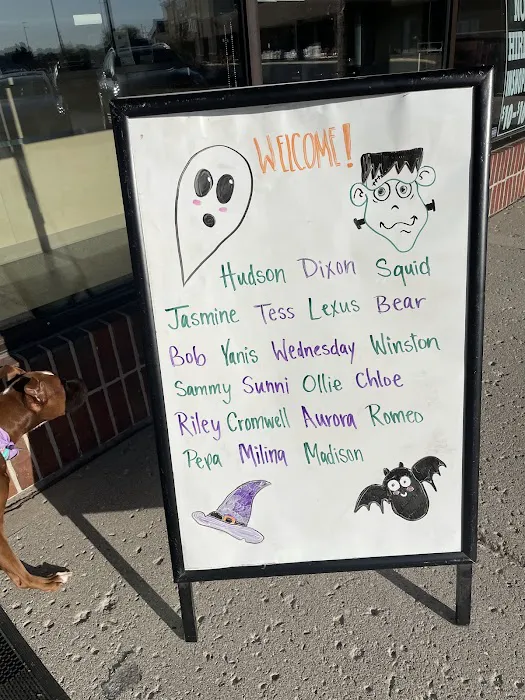 WELCOME!
Hudson Dixon Squid
Jasmine Tess Lexus Bear
Bob Yanis Wednesday Winston
Sammy Sunni Ollie Chloe
Riley Cromwell Aurora Romeo
Pepa Milina Madison